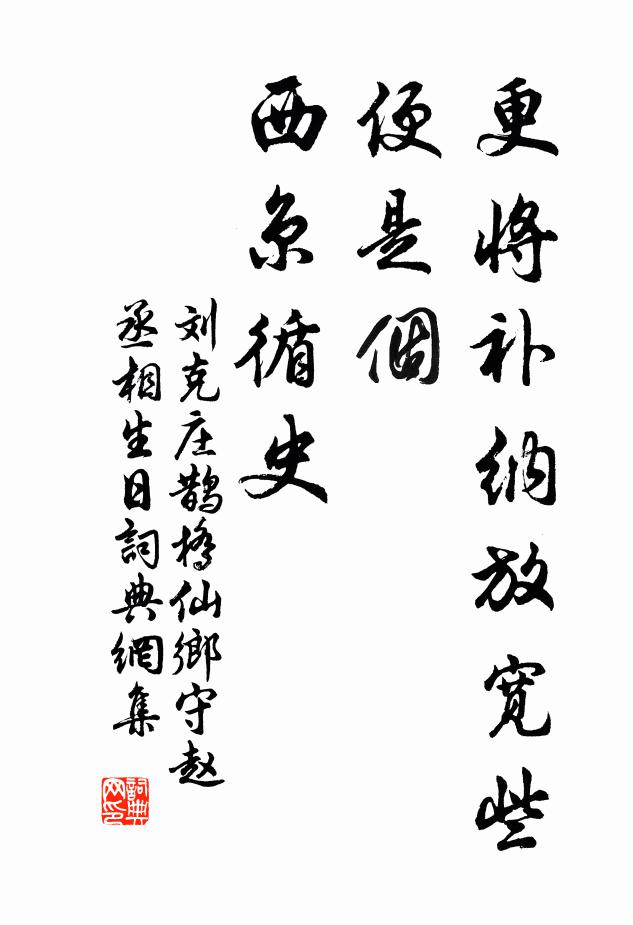 更将补纳放宽些
便是個
西京循史
刘克庄鹊橋仙鄉守赵
丞相生日詞典網集
詞典
网印